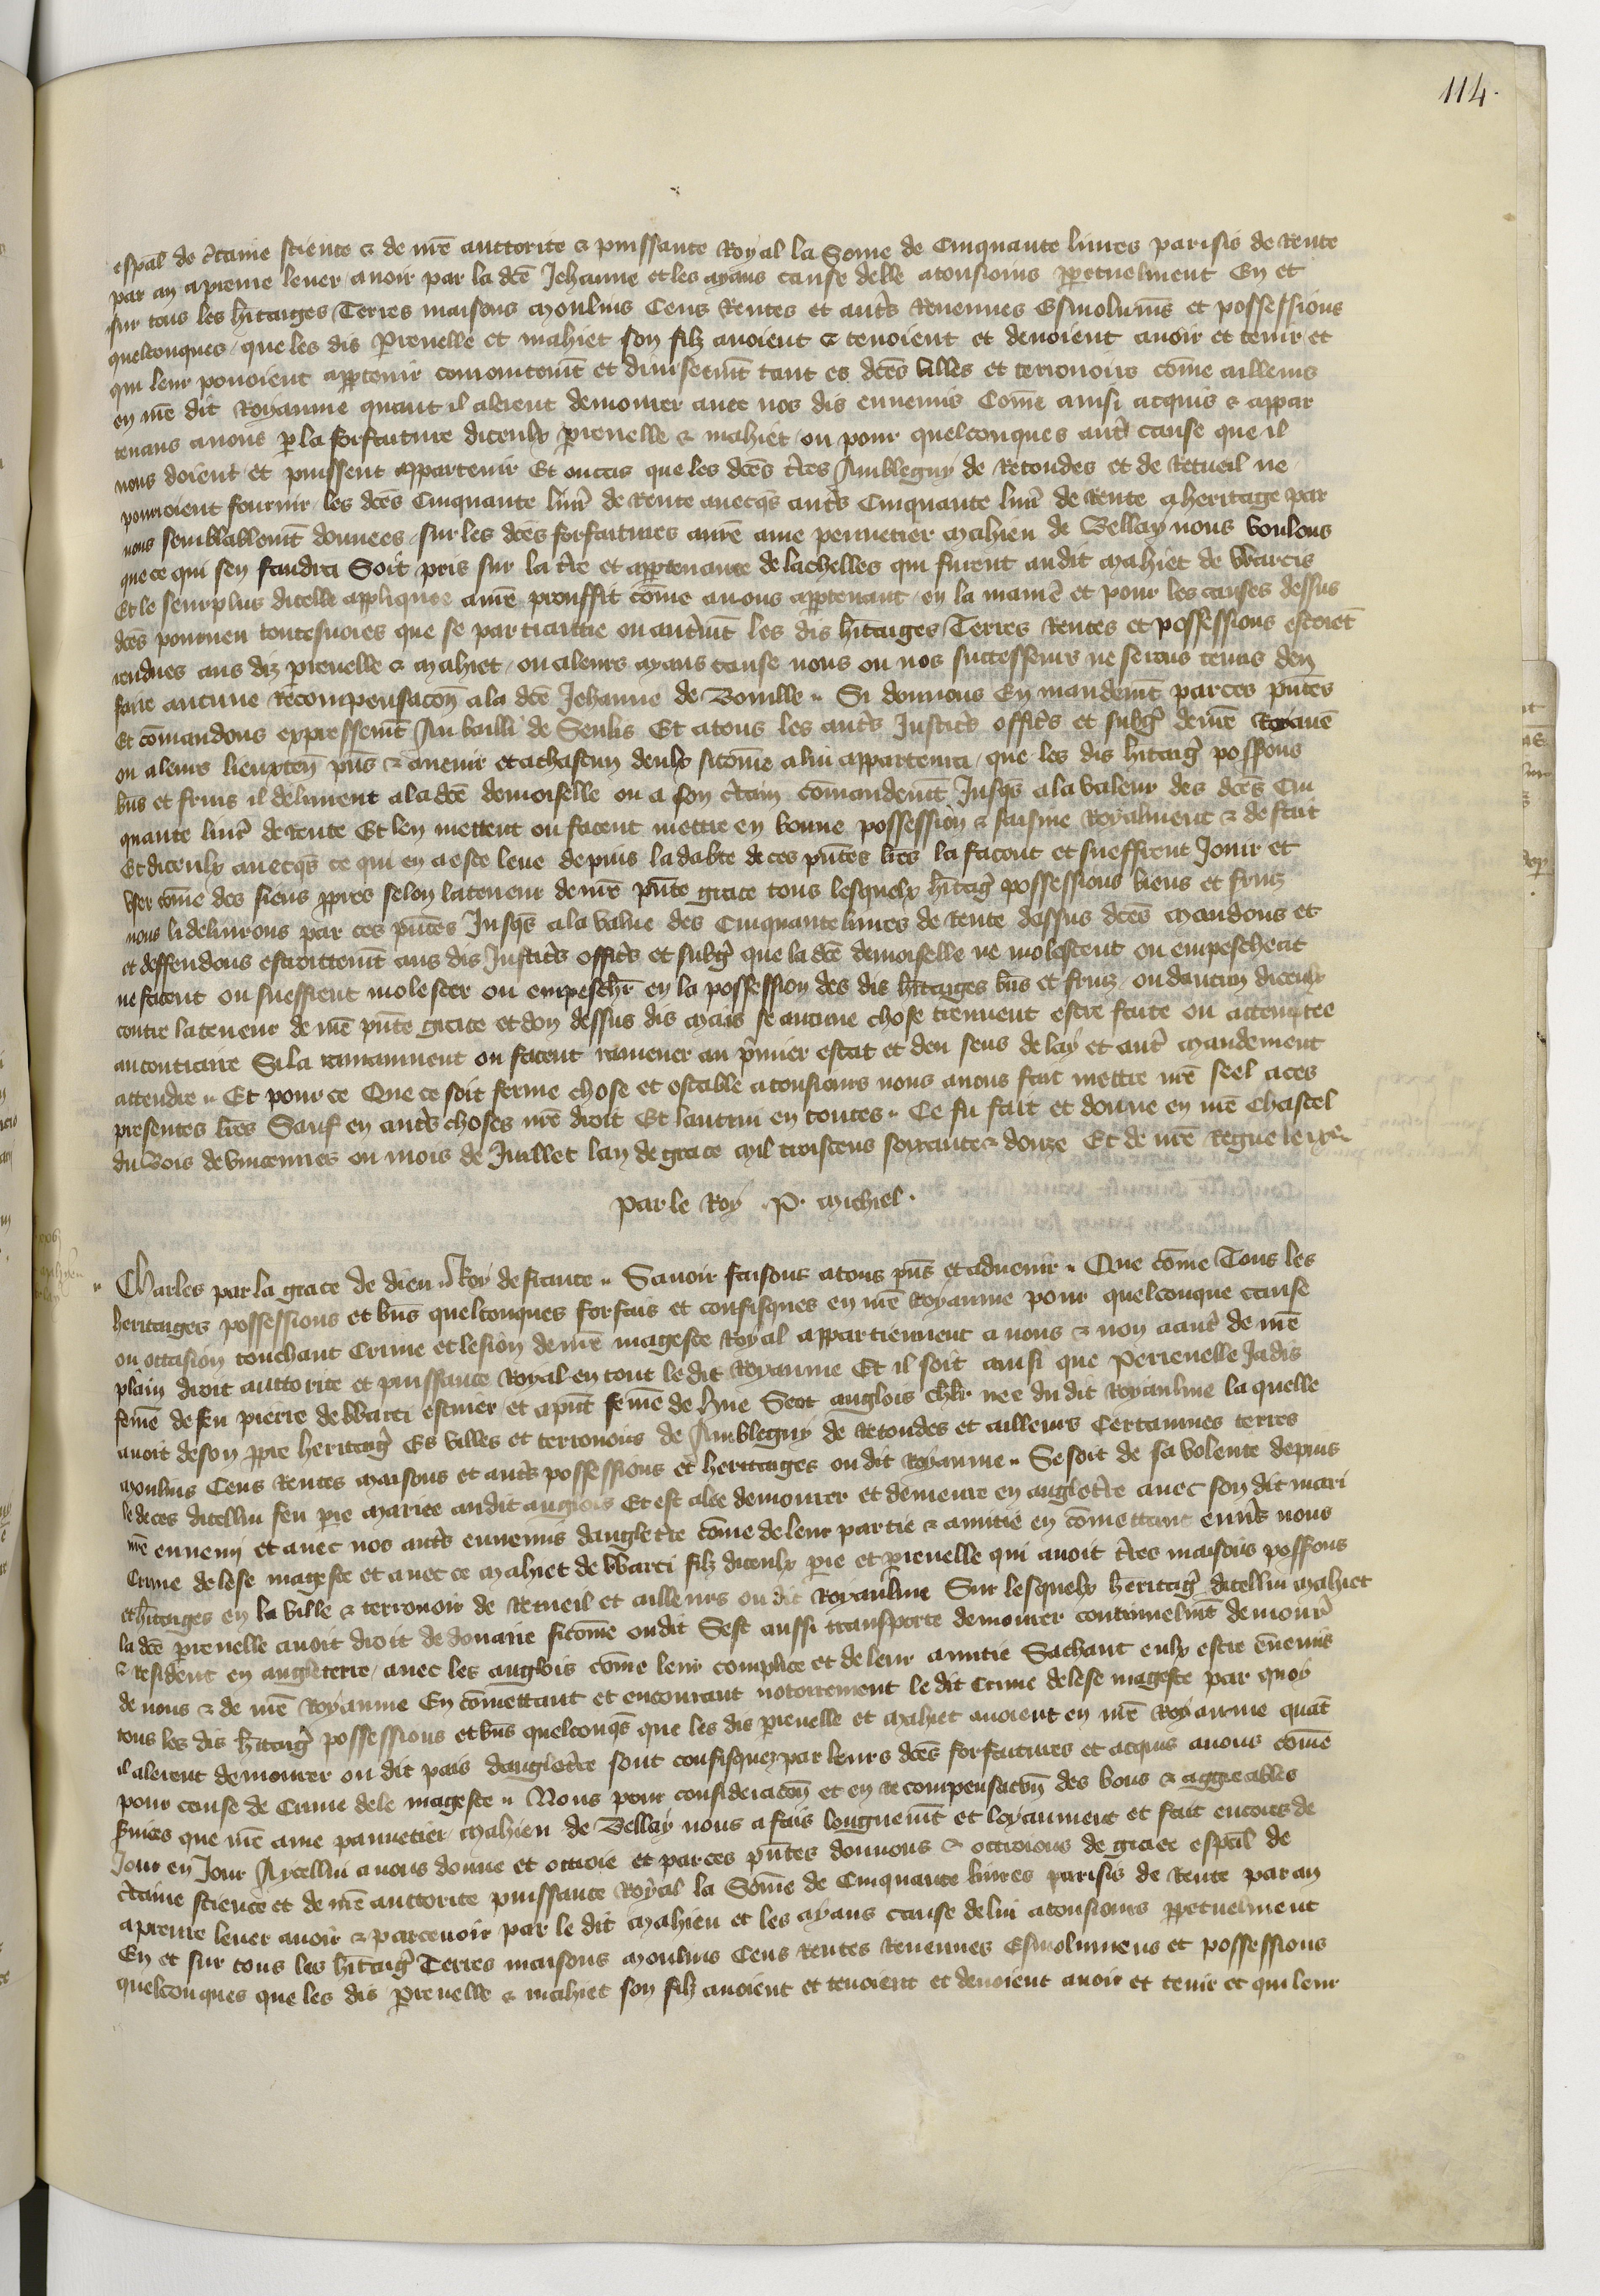 114.
espāl de c̃taine science & de nr̄e auctorite & puissance Royal la Some de Cinquante liures parisis de Rente
par an a prenre leuer auoir par la dc̄e Jehanne et les ayans cause delle atousiours ꝑpetuelment En et
sur tous les h̄itaiges Terres maisons moulins Cens Rentes et aut̃s Reuenues Esmolumẽs et possessions
quelconques que les dis P̱renelle et mahiet son filz auoient & tenoient et deuoient auoir et tenir et
qui leur pouoient apꝑtenir conioinctemt̄ et diuisemt̄ tant es dc̄es villes et terrouoirs cōme ailleurs
en nr̄e dit Royaume quant il alerent demourer auec nos dis ennemis Cōme ainsi acquis & appar
tenans a nous ꝑ la forfaiture diceulx prenelle & mahiet ou pour quelconques aut̃ cause que il
nous doient et puissent appartenir Et ou cas que les dc̄es t̃res Ambleguy de Retondes et de Retueil ne
pourroient fournir les dc̄es Cinquante liur̃ de Rente auecqs̄ aut̃s Cinquante liur̃ de Rente a heritage par
nous semblablemt̄ donnees sur les dc̄es forfaitures a nr̄e ame pennetier Mahieu de Bellay nous voulons
que ce qui sen faudra Soit pris sur la t̃re et apꝑtenance de lachelles qui furent au dit Mahiet de Warcis
Et le seurplus dicelle appliquee a nr̄e prouffit cōme a nous apꝑtenant en la manie͛ et pour les causes dessus
dc̄es pourueu touteuoies que se par traictie ou autremt̄ les dis h̄itaiges Terres Rentes et possessions estoiēt
rendues aus diz prenelle & Mahiet ou a leurs ayans cause nous ou nos successeurs ne serons tenus den
faire aucune Recompensacōn a la dc̄e Jehanne de Bouille Si donnons En mandemt̄ par ces pn̄tes
Et cōmandons expressemt̄ Au bailli de Senlis Et a tous les aut̃s Justic̃s offic̃s et subg̃ de nr̄e Royaūe
ou a leurs lieuxten̄ pn̄s & auenir et a chascun deulx sicōme a lui appartenra que les dis h̄itaig̃ possons
bn̄s et fruis il deliurent a la dc̄e demoiselle ou a son c̃tain cōmandemt̄ Jusqs̄ a la valeur des dc̄es Cin
quante liur̃ de Rente Et len mettent ou facent mettre en bonne possession & saisine Royalment & de fait
Et diceulx auecqs̄ ce qui en a este leue depuis la dabte de ces pn̄tes lr̄es la facent et sueffrent Jouir et
vser cōme des siens ꝓpres selon la teneur de nr̄e pn̄te grace tous lesquelx h̄itaig̃ possessions biens et fruiz
nous li deliurons par ces pn̄tes Jusqs̄ a la value des Cinquante liures de Rente dessus dc̄es Mandons et
et deffendons estroittemt̄ aus dis Justic̃s offic̃s et subg̃ que la dc̄e demoiselle ne molestent ou empeschent
ne facent ou sueffrent molester ou empeschr̄ en la possession des dis h̄itaiges bn̄s et fruiz ou daucun diceulx
contre la teneur de nr̄e pn̄te grace et don dessus dis Mais se aucune chose treuuent estre faite ou attemptee
au contraire Si la ramainnent ou facent ramener au p̄mier estat et deu sens delay et aut̃ mandement
attendre Et pour ce Que ce soit ferme chose et estable a tousiours nous auons fait mettre nr̄e seel a ces
presentes lr̄es Sauf en aut̃s choses nr̄e droit Et lautrui en toutes Ce fu fait et donne en nr̄e Chastel
du Bois de vincennes ou mois de Juillet lan de grace Mil troiscens soixante & douze Et de nr̄e Regne le ixe
Par le Roy P. Michiel
Charles par la grace de dieu Roy de france Sauoir faisons a tous pn̄s et aduenir Que cōme Tous les
heritages possessions et bn̄s quelconques forfais et confisques en nr̄e Royaume pour quelconque cause
ou occasion touchant Crime et lesion de nr̄e mageste Royal appartiennent a nous & non a aut̃ de nr̄e
plain droit auctorite et puissance Royal en tout le dit Royaume Et il soit ainsi que Perrenelle Jadis
femē de feu pierre de Warci escuier et a pn̄t femē de Hue Scot anglois chl̃r nee du dit Royaulme la quelle
auoit de son ꝓpre heritaig̃ Es villes et terrouoirs de Ambleguy de Retondes et ailleurs Certaines terres
Moulins Cens Rentes Maisons et aut̃s possessions et heritages ou dit Royaume Se soit de sa volente depuis
le deces dicellui feu pr̄e Mariee au dit anglois Et est alee demourer et demeure en anglet̃re auec son dit mari
nr̄e ennemy et auec nos aut̃s ennemis danglet̃re cōme de leur partie & amitie en cōmettant enuers nous
Crime de lese mageste et auec ce Mahiet de Warci filz diceulx pr̄e et prenelle qui auoit t̃res maisons possons
et h̄itaiges en la ville & terrouoir de Retueil et ailleurs ou dit Royaulme Sur lesquelx heritaig̃ dicellui Mahiet
la dc̄e prenelle auoit droit de douaire sicōme on dit Sest aussi transporte demourer continuelmt̄ demour̄
& resident en angleterre auec les anglois cōme leur complice et de leur amitie Sachant eulx estre ēnemis
de nous & de nr̄e Royaume En cōmettant et encourant notoirement le dit Crime de lese mageste par quoy
tous les dis h̄itaig̃ possessions et bn̄s quelconqs̄ que les dis prenelle et Mahiet auoient en nr̄e Royaume quāt
il alerent demourer ou dit pais danglet̃re sont confisquez par leurs dc̄es forfaitures et acquis a nous cōme
pour cause de Crime de le mageste Nous pour consideracōn et en recompensacōn des bons & aggreables
s̄uices que nr̄e ame pannetier Mahieu de Bellay nous a fais longuemt̄ et loyaument et fait encores de
Jour en Jour A ycellui auons donne et octroie et par ces pn̄tes donnons & octroions de grace espāl de
c̃taine science et de nr̄e auctorite puissance Royal la Sōme de Cinquante liures parisis de Rente par an
a prenre leuer auoir & parceuoir par le dit Mahieu et les ayans cause de lui a tousiours ꝑpetuelment
En et sur tous les h̄itaig̃ Terres maisons Moulins Cens Rentes Reuenues Esmolumens et possessions
quelconques que les dis Prenelle & mahiet son filz auoient et tenoient et deuoient auoir et tenir et qui leur